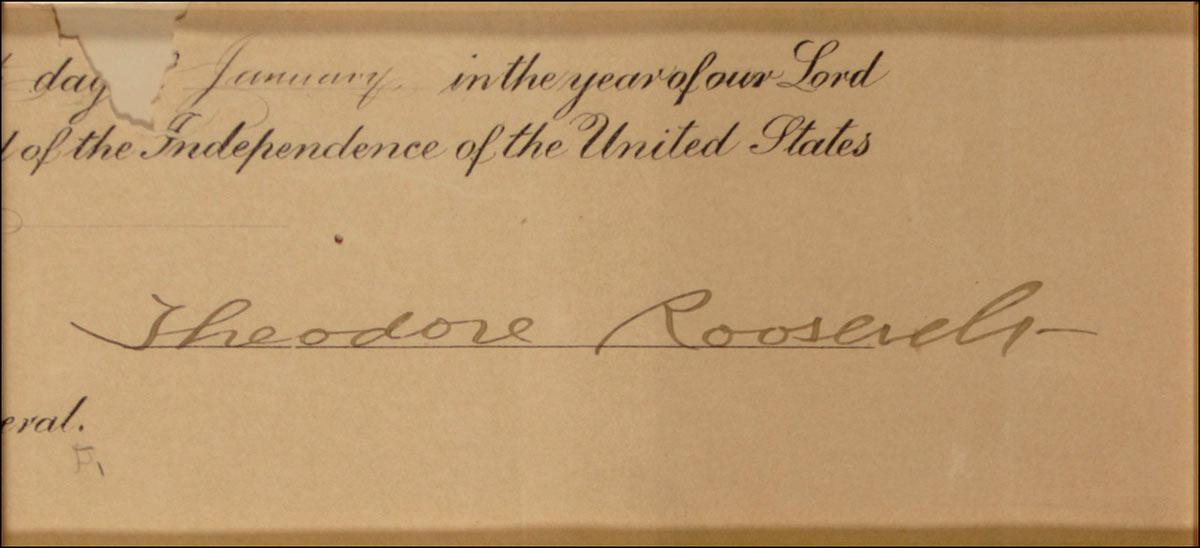 day January in the year of our Lord
of the Independence of the United States
Theodore Roosevelt
eral.